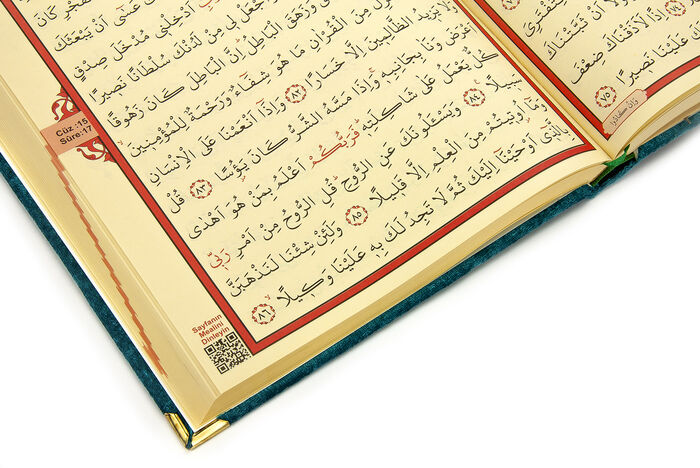 لِتَفْتَرِيَ
وَلَوْلَٓا اَنْ ثَبَّتْنَاكَ
اِذًا لَاَذَقْنَاكَ ضِعْفَ
لَكَ عَلَيْنَا نَصِيرًا ﴿٧٥﴾
الْفَجْرِ كَانَ
عَسٰٓى اَنْ يَبْعَثَكَ
اَدْخِلْنِي مُدْخَلَ صِدْقٍ
جْعَلْ لِي مِنْ لَدُنْكَ سُلْطَانًا نَصِيرًا
وَزَهَقَ الْبَاطِلُ اِنَّ الْبَاطِلَ كَانَ زَهُوقًا
مِنَ الْقُرْاٰنِ مَا هُوَ شِفَٓاءٌ وَرَحْمَةٌ لِلْمُؤْمِنِينَ
يَزِيدُ الظَّالِمِينَ اِلَّا خَسَارًا ﴿٨٢﴾ وَاِذَٓا اَنْعَمْنَا عَلَى الْاِنْسَانِ
اَعْرَضَ وَنَاٰ بِجَانِبِهِ وَاِذَا مَسَّهُ الشَّرُّ كَانَ يَؤُ۫سًا ﴿٨٣﴾ قُلْ
كُلٌّ يَعْمَلُ عَلٰى شَاكِلَتِهِ فَرَبُّكُمْ اَعْلَمُ بِمَنْ هُوَ اَهْدٰى
سَبِيلًا ﴿٨٤﴾ وَيَسْـَٔلُونَكَ عَنِ الرُّوحِ قُلِ الرُّوحُ مِنْ اَمْرِ رَبِّي
وَمَٓا اُو۫تِيتُمْ مِنَ الْعِلْمِ اِلَّا قَلِيلًا ﴿٨٥﴾ وَلَئِنْ شِئْنَا لَنَذْهَبَنَّ
بِالَّذِٓي اَوْحَيْنَٓا اِلَيْكَ ثُمَّ لَا تَجِدُ لَكَ بِهِ عَلَيْنَا وَكِيلًا ﴿٨٦﴾
Cüz :15
Sûre:17
Sayfanın
Mealini
Dinleyin